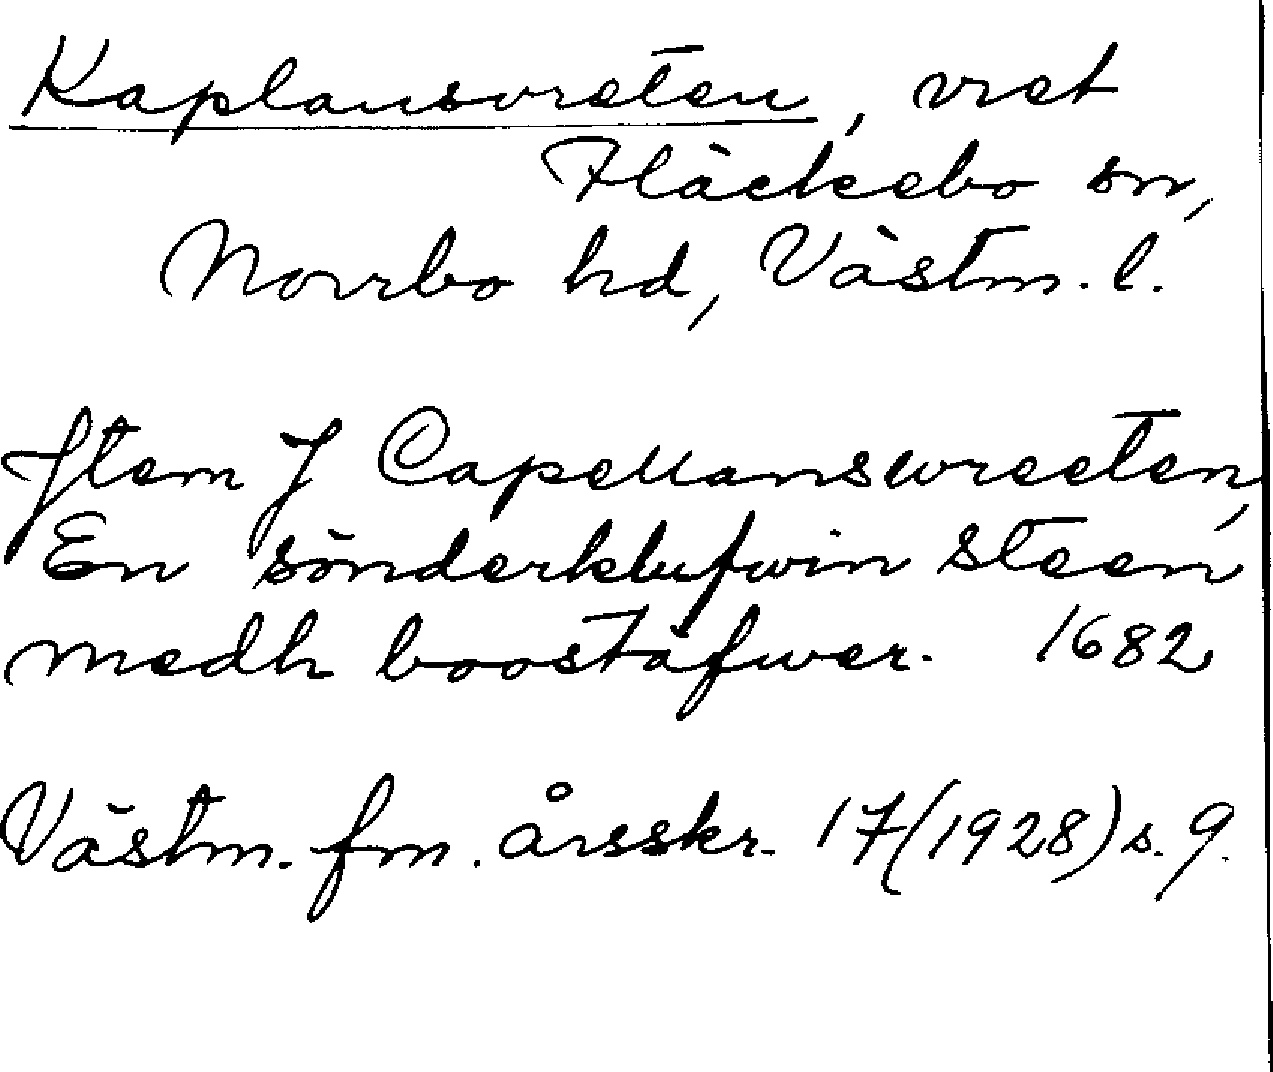 Kaplansvreten, vret
Fläckebo sn,
Norrbo hd, Västm. l.
Jtem J Capellanswreeten,
En sönderklufwin steen
medh boostäfwer. 1682
Västm. fm. årsskr. 17(1928) s. 9.